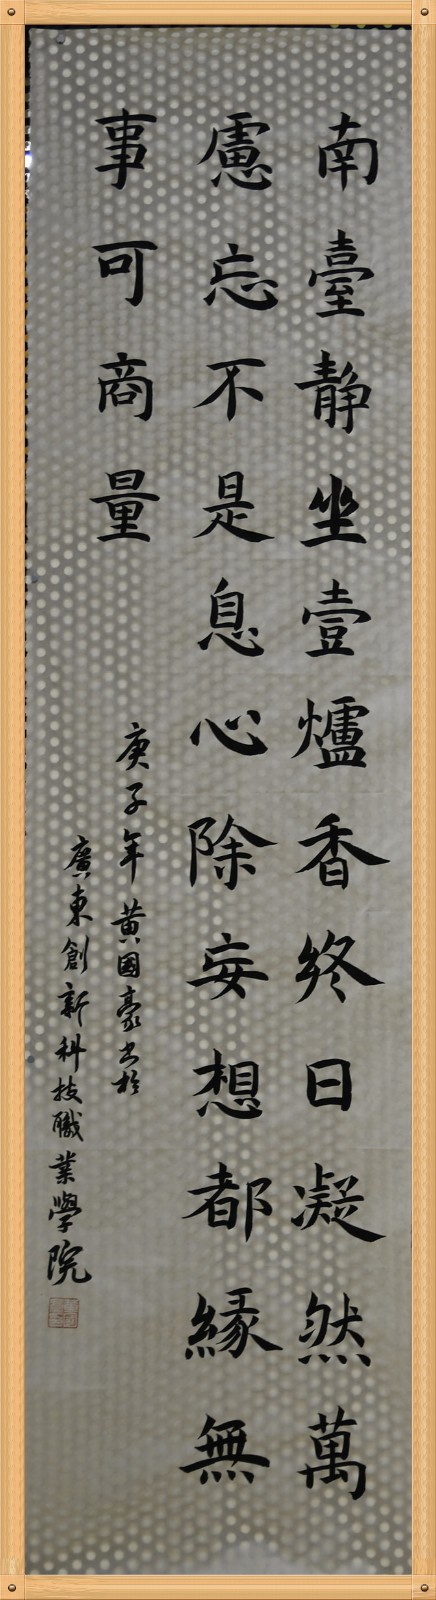 南臺靜坐壹爐香終日凝然萬
慮忘不是息心除妄想都緣無
事可商量
庚子年黄國豪书於
廣東創新科技職業學院